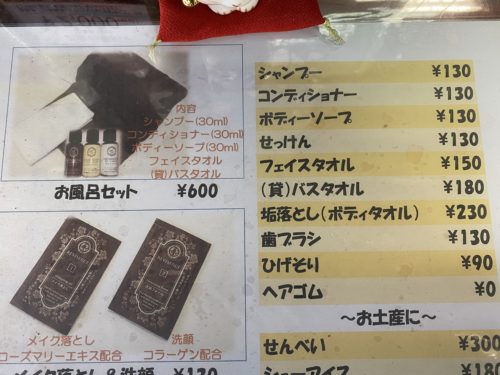 内容
シャンプー(30ml)
コンディショナー(30ml)
ボディーソープ(30ml)
フェイスタオル
(貸)バスタオル
お風呂セット ¥600
メイク落とし
ローズマリーエキス配合
洗顔
コラーゲン配合
メイク落とし&洗顔 ¥130
シャンプー ¥130
コンディショナー ¥130
ボディーソープ ¥130
せっけん ¥130
フェイスタオル ¥150
(貸)バスタオル ¥180
垢落とし(ボディタオル) ¥230
歯ブラシ ¥130
ひげそり ¥90
ヘアゴム ¥0
~お土産に~
せんべい ¥300
シューアイス ¥180